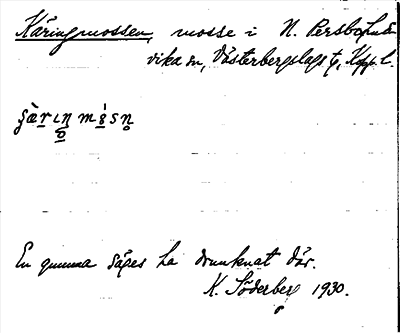 Käringmossen, mosse i N. Persbo, Lud-
vika sn, Västerbergslags tg, Kopp. l.
En gumma säges ha drunknat där.
K. Söderberg 1930.